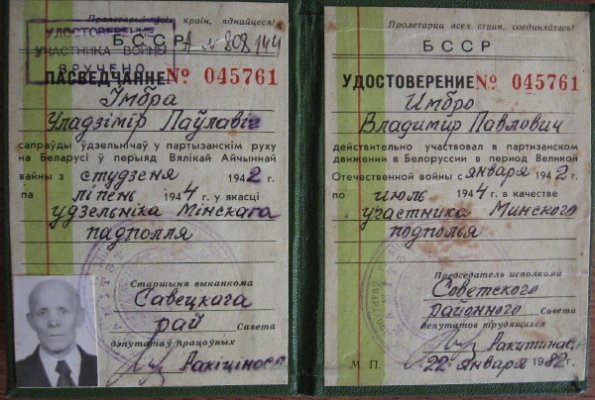 Пралетарыі ўсіх краін, яднайцеся!
БССР
УДОСТОВЕРЕНИЕ
УЧАСТНИКА ВОЙНЫ
ВРУЧЕНО
А № 808144
ПАСВЕДЧАННЕ № 045761
Імбра
Уладзімір Паўлавіч
сапраўды ўдзельнічаў у партызанскім руху
на Беларусі ў перыяд Вялікай Айчыннай
вайны з студзеня 1942 г.
па ліпень 1944 г. у якасці
удзельніка Мінскага
падполля
Старшыня выканкома
Савецкага
рай Савета
дэпутатаў працоўных
Ракіцінаса
Пролетарии всех стран, соединяйтесь!
БССР
УДОСТОВЕРЕНИЕ № 045761
Имбро
Владимир Павлович
действительно участвовал в партизанском
движении в Белоруссии в период Великой
Отечественной войны с января 1942 г.
по июль 1944 г. в качестве
участника Минского
подполья
Председатель исполкома
Советского
районного Совета
депутатов трудящихся
М. П. 22 января 1982 г.